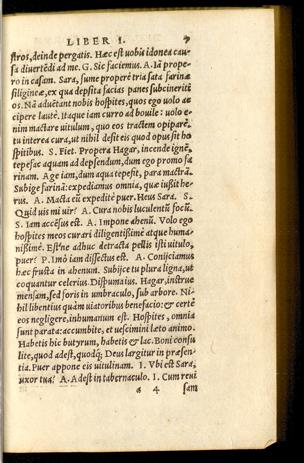 LIBER I. 7
stros, deinde pergatis. Hæc est uobis idonea cau-
sa diuertẽdi ad me. G. Sic faciemus. A. Iã prope-
ro in casam. Sara, sume properè tria sata farinæ
siligineæ, ex qua depsita facias panes subcineriti
os. Nã aduẽtant nobis hospites, quos ego uolo ac
cipere lautè. Itaque iam curro ad bouile: uolo e-
nim mactare uitulum, quo eos tractem opiparè.
tu interea cura, ut nihil desit eis quod opus sit ho
spitibus. S. Fiet. Propera Hagar, incende ignẽ,
tepefac aquam ad depsendum, dum ego promo fa
rinam. Age iam, dum aqua tepefit, para mactrã.
Subige farinã: expediamus omnia, quæ iußit he-
rus. A. Macta eũ expeditè puer. Heus Sara. S.
Quid uis mi uir? A. Cura nobis luculentũ focũ.
S. Iam accẽsus est. A. Impone ahenũ. Volo ego
hospites meos curari diligentißimè atque huma-
nißimè. Est'ne adhuc detracta pellis isti uitulo,
puer? P. Imò iam dissectus est. A. Conijciamus
hæc frusta in ahenum. Subijce tu plura ligna, ut
coquantur celerius. Dispumaius. Hagar, instrue
mensam, sed foris in umbraculo, sub arbore. Ni-
hil libentius quàm uiatoribus benefacio: & certè
eos negligere, inhumanum est. Hospites, omnia
sunt parata: accumbite, et uescimini læto animo.
Habetis hic butyrum, habetis & lac. Boni consu
lite, quod adest, quodq; Deus largitur in præsen-
tia. Puer appone eis uitulinam. I. Vbi est Sara,
uxor tua? A. Adest in tabernaculo. I. Cum reui
a 4 sam